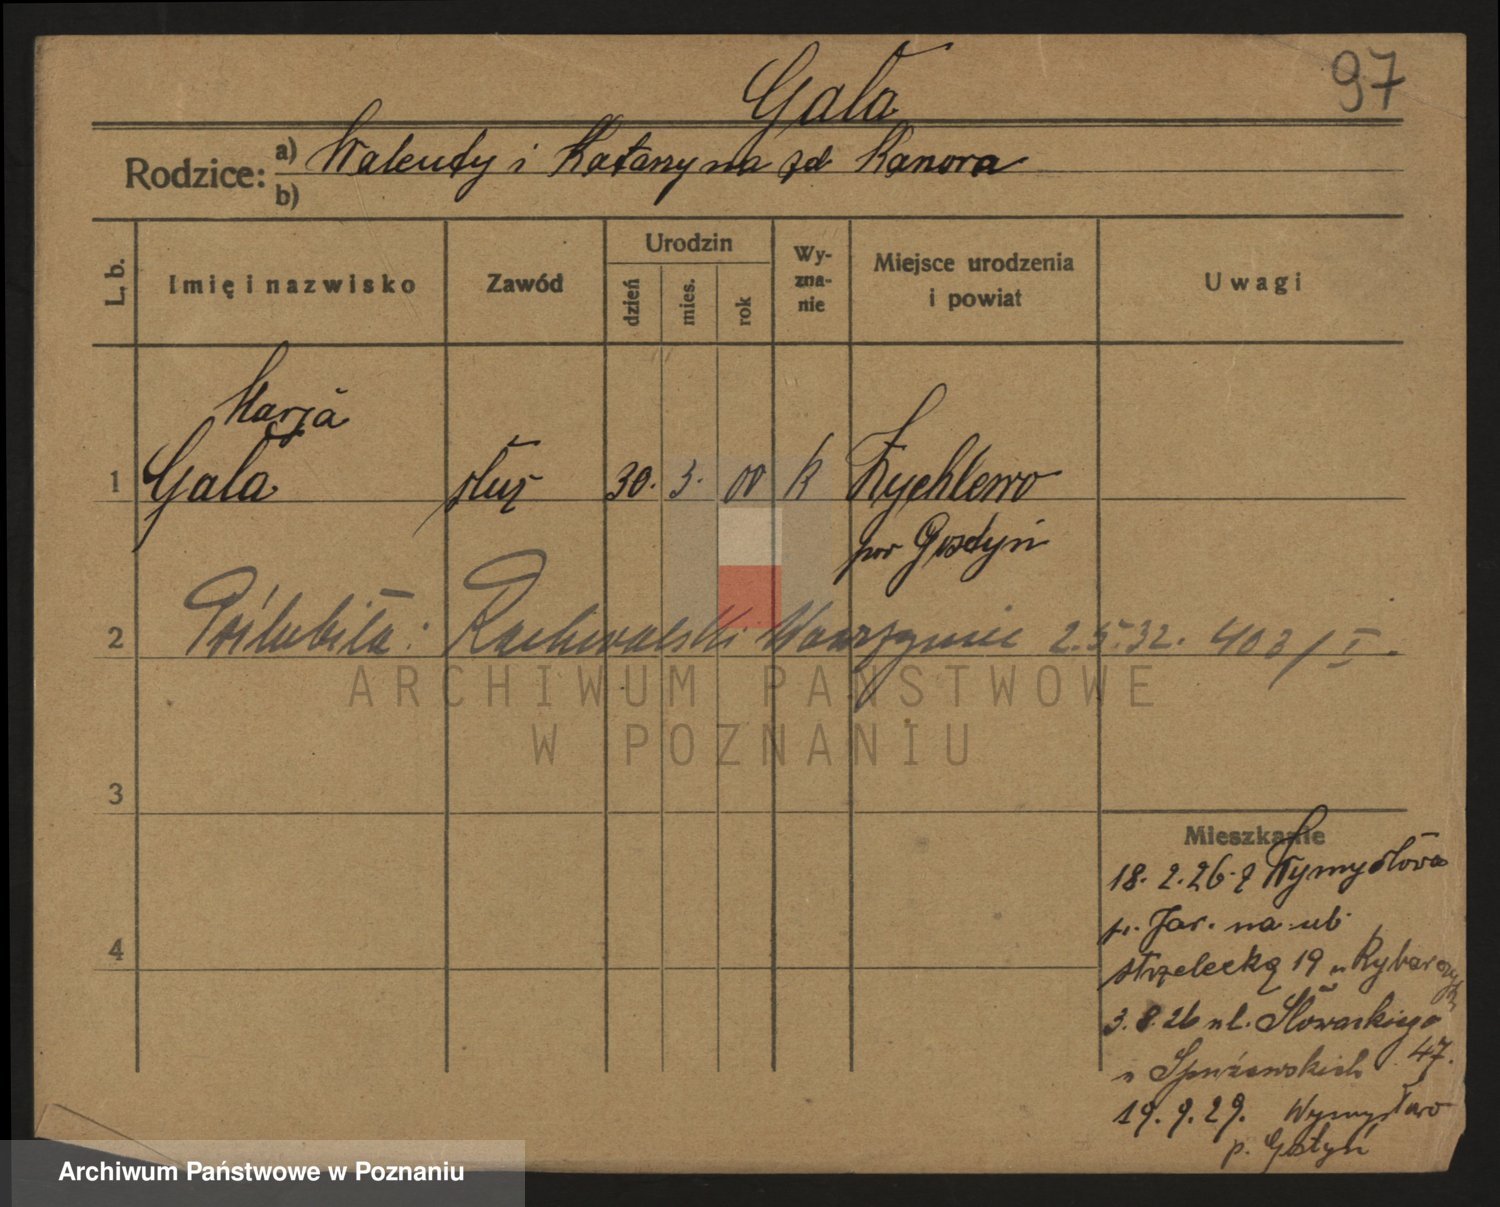 Gala
97
Rodzice:
a) Walenty i Katarzyna zd Kanora
b)
L. b.
Imię i nazwisko
Zawód
Urodzin
dzień
mies.
rok
Wy-
zna-
nie
Miejsce urodzenia
i powiat
Uwagi
Marja
1 Gala służ 30. 3. 00 k Żychlewo
pow Gostyń
2 Poślubiła: Rachwalski Wawrzyniec 2.5.32. 403/I.
ARCHIWUM PAŃSTWOWE
W POZNANIU
3
Mieszkanie
18. 2. 26. z Wymysłowa
p. Jar. na ul.
4
strzelecką 19 u Rybarczyk
3. 8. 26 ul. Słowackiego
47.
19. 9. 29. Wymysłowo
p. Gostyń
Archiwum Państwowe w Poznaniu